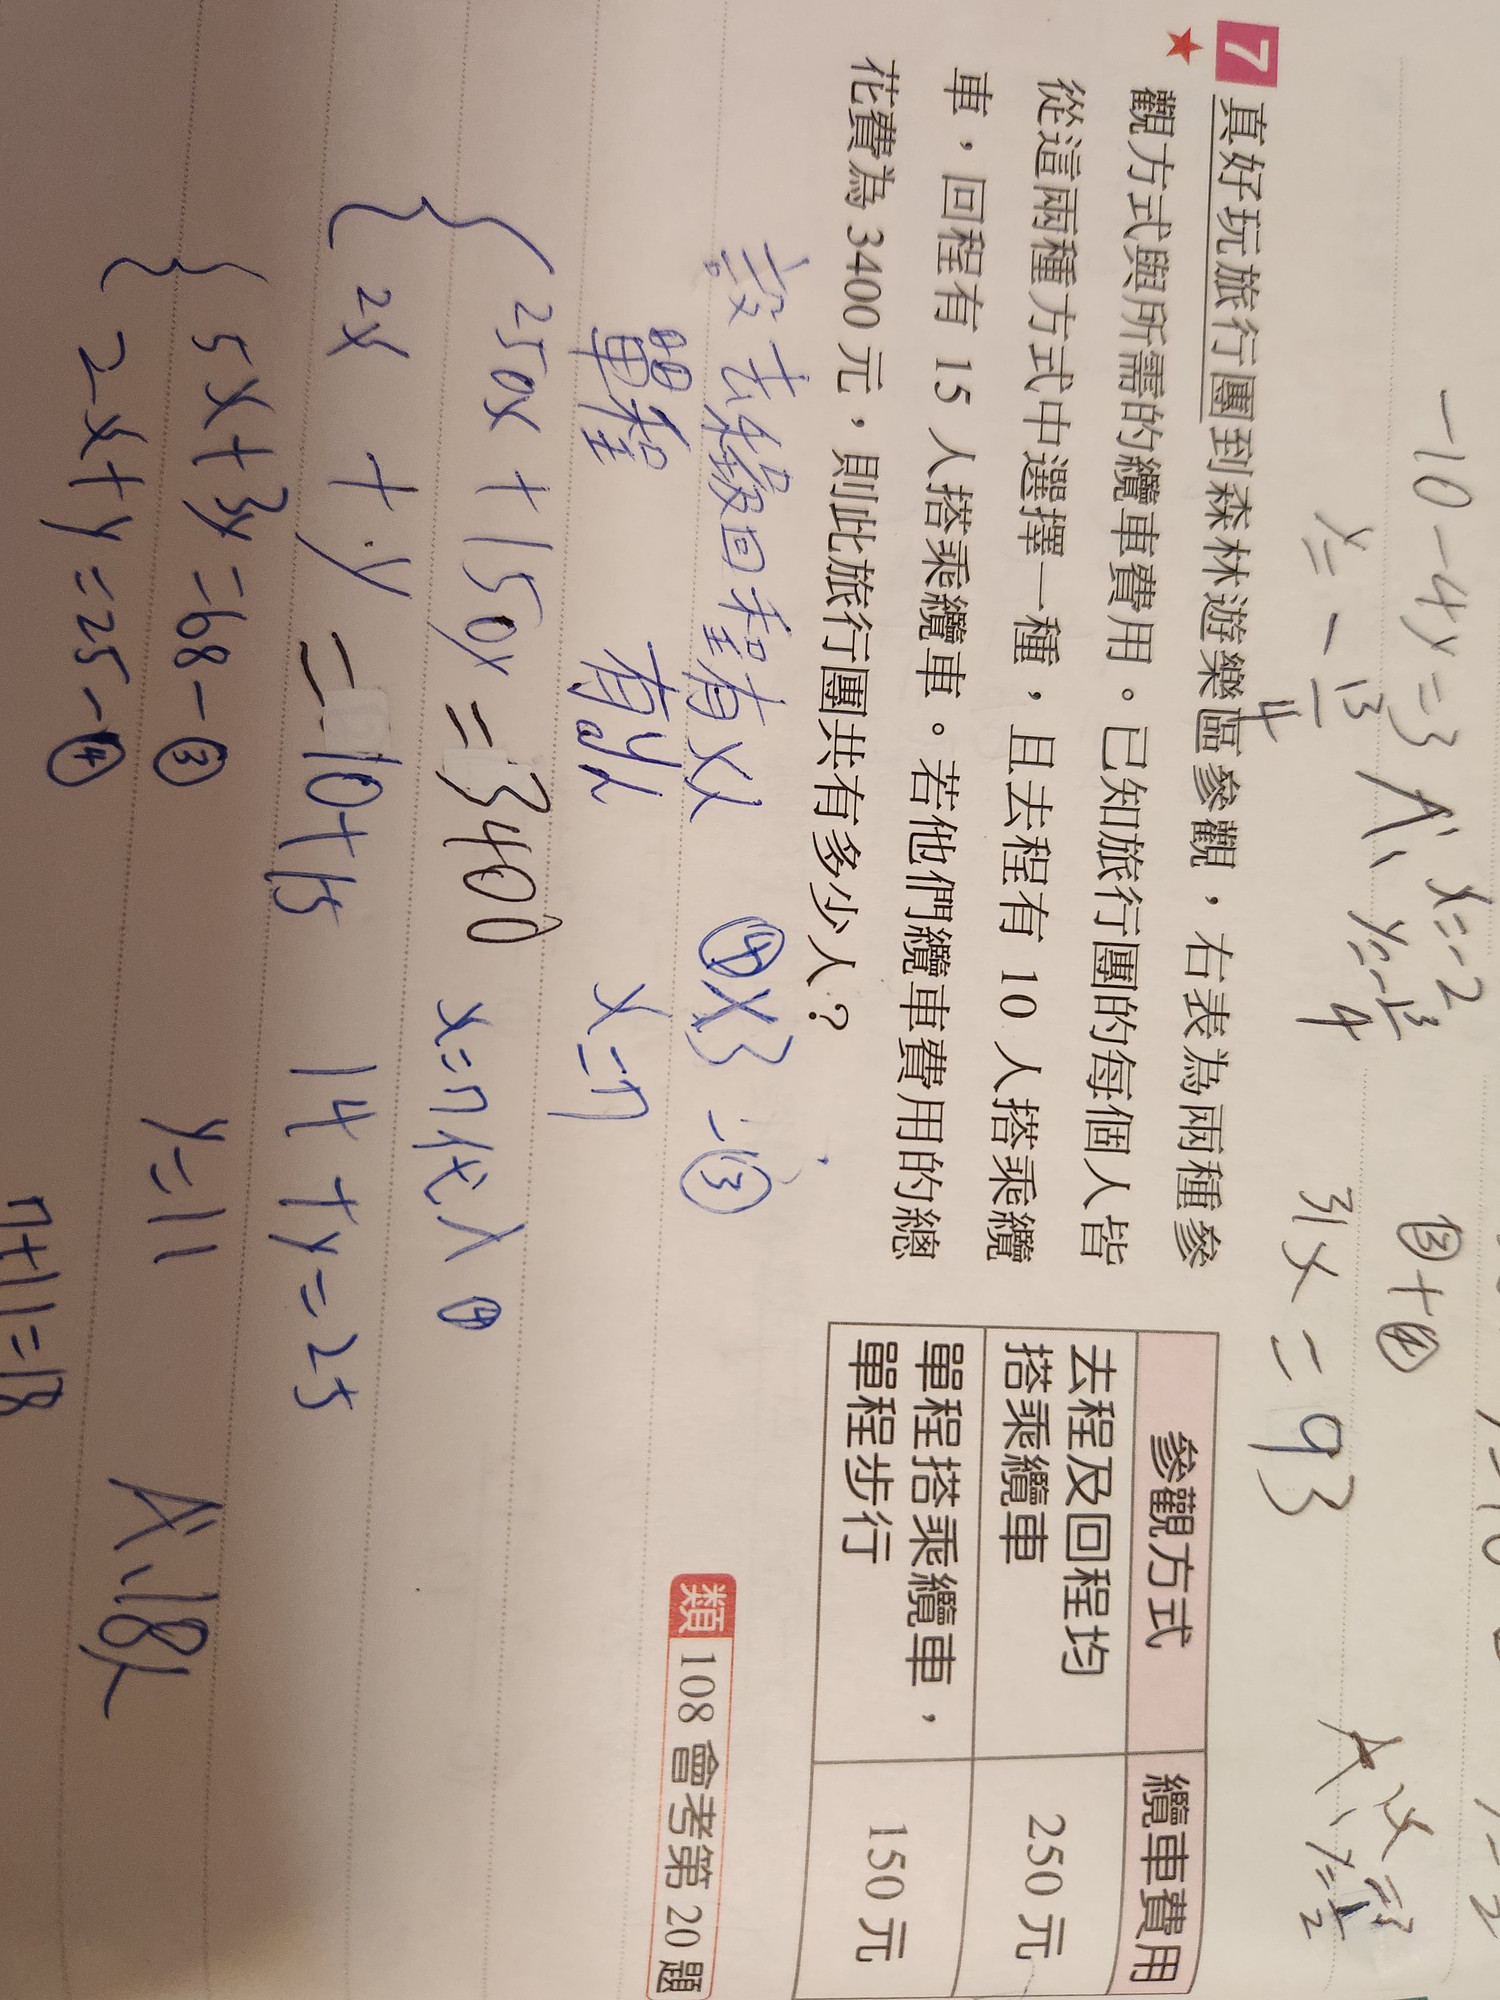 -10-4y=3
x=-2
y=-13/4
A、
y=-13/4
③+④
31x=93
A、x=3
y=1/2
7 真好玩旅行團到森林遊樂區參觀,右表為兩種參
★ 觀方式與所需的纜車費用。已知旅行團的每個人皆
從這兩種方式中選擇一種,且去程有 10 人搭乘纜
車,回程有 15 人搭乘纜車。若他們纜車費用的總
花費為 3400 元,則此旅行團共有多少人?
參觀方式 纜車費用
去程及回程均
搭乘纜車 250 元
單程搭乘纜車,
單程步行 150 元
類 108 會考第 20 題
設去程及回程有x人
單程 有y人
{250x+150y=3400
2x+y=10+15
{5x+3y=68-③
2x+y=25-④
④×3-③
x=7
x=7代入④
14+y=25
y=11
7+11=18
A、18人